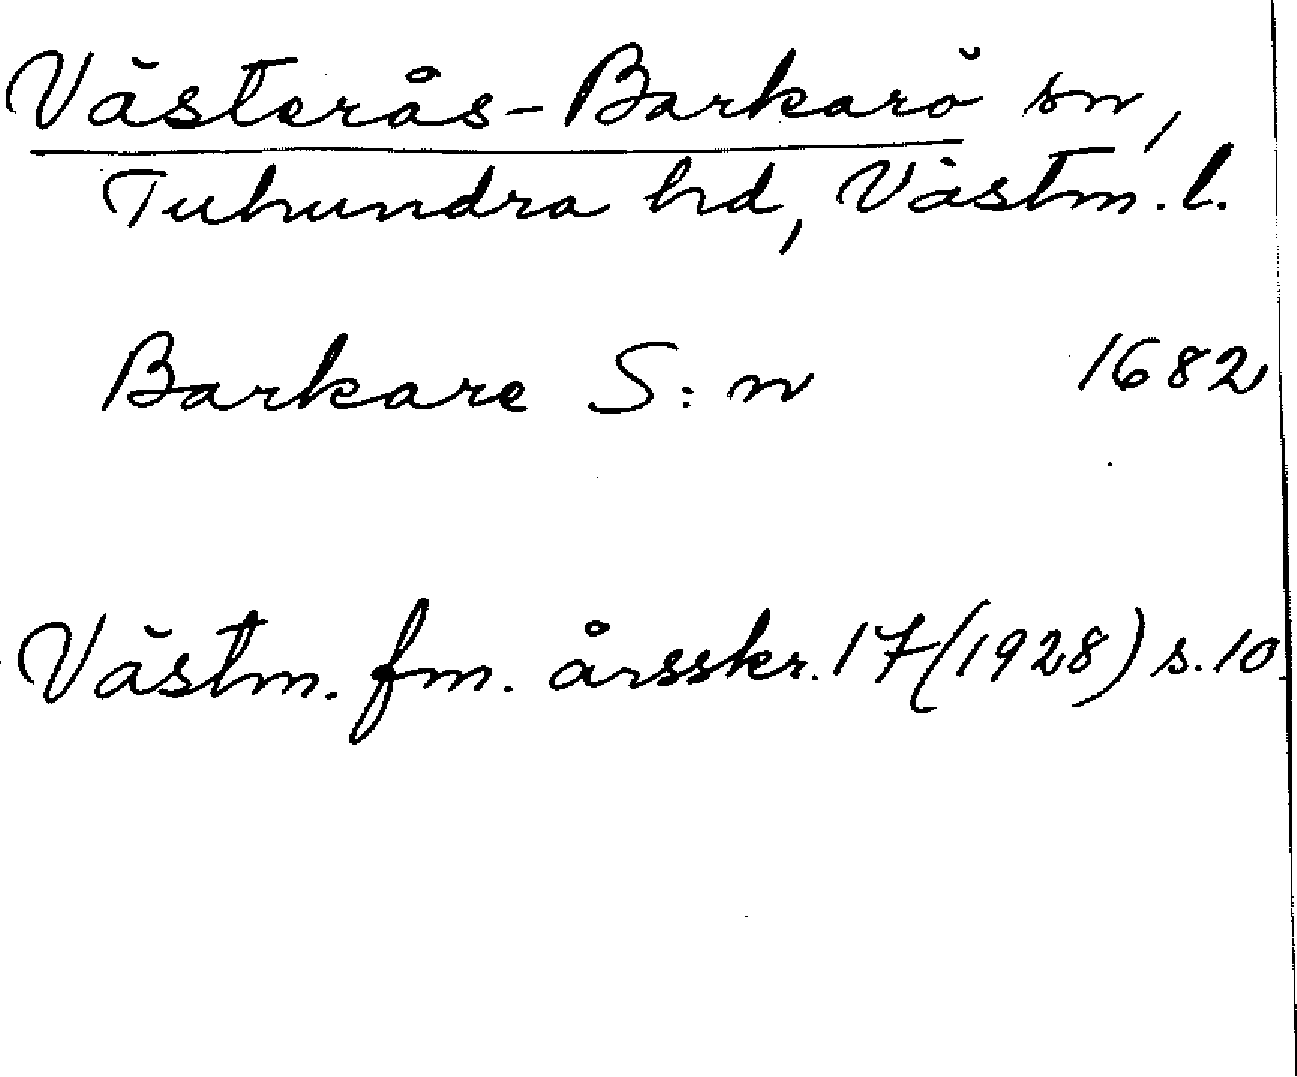 Västerås-Barkarö sn,
Tuhundra hd, Västm. l.
Barkare S:n 1682
Västm. fm. årsskr. 17 (1928) s. 10